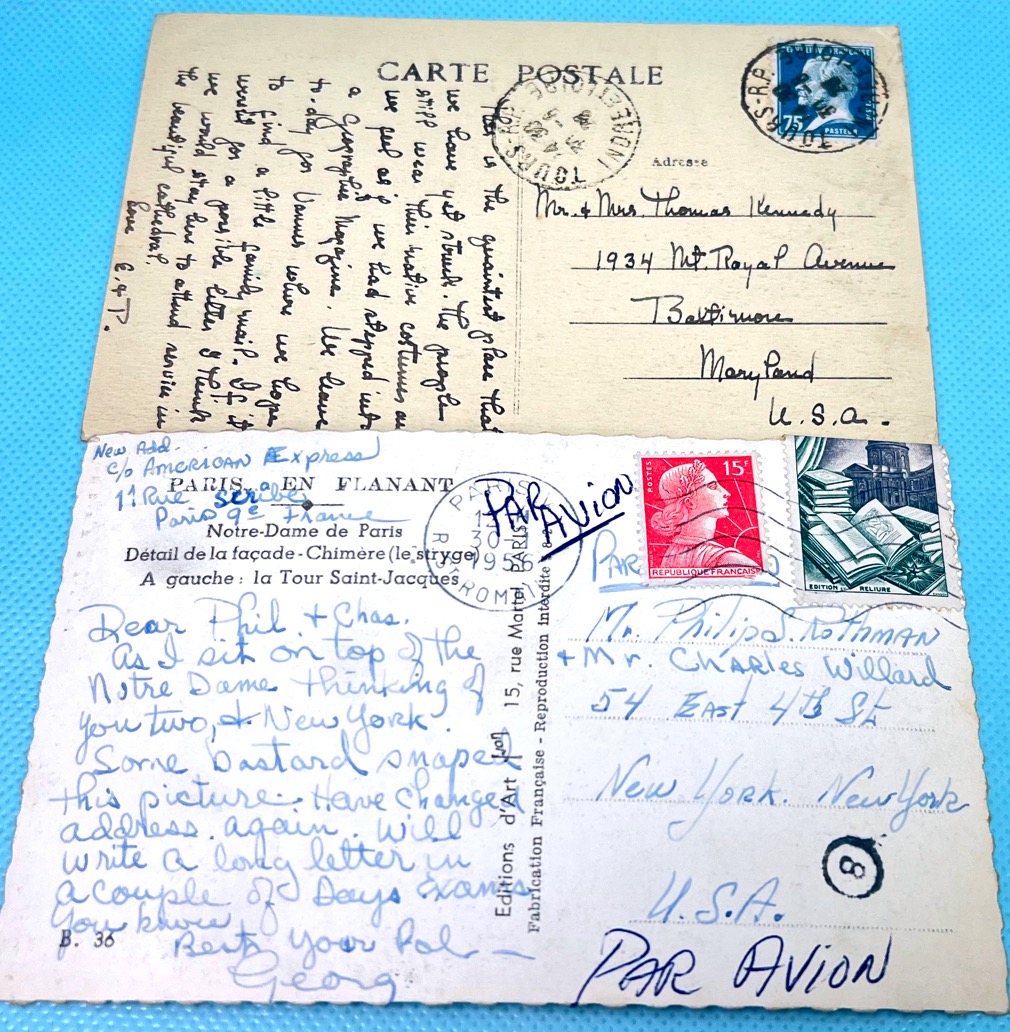 CARTE POSTALE
This is the quaintest place that
we have yet struck. The people
still wear their native costumes and
we feel as if we had stepped into
a Geographic Magazine. We leave
to-day for Vannes where we hope
to find a little family mail. If it
weren't for a possible letter I think
we would stay here to attend service in
the beautiful cathedral
Love E. & P.
TOURS-R.P.
INDRE ET LOIRE
POSTES
75
PASTEUR
TOURS-R.P.
Adresse
Mr. & Mrs. Thomas Kennedy
1934 Mt. Royal Avenue
Baltimore
Maryland
U.S.A.
New Add.
c/o AMERICAN Express
11 Rue Scribe
Paris 9e France
PARIS EN FLANANT
Notre-Dame de Paris
Détail de la façade - Chimère (le stryge)
A gauche : la Tour Saint-Jacques
Dear Phil & Chas.
As I sit on top of the
Notre Dame thinking of
you two, & New York.
Some bastard snaped
this picture. Have changed
address again. Will
write a long letter in
a couple of Days Exams
you know
Best, Your Pal —
Georg
B. 36
PARIS
30
1956
R. DROMEL
Editions d'Art Yvon 15, rue Martel, PARIS
Fabrication Française - Reproduction Interdite
PAR AVION
POSTES
15F
REPUBLIQUE FRANÇAISE
EDITION ET RELIURE
PAR
Mr. Philip S. Rothman
+ Mr. Charles Willard
54 East 4th St
New York. New York
8
U.S.A.
PAR AVION